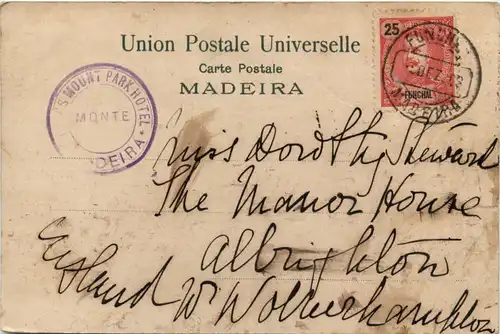 Union Postale Universelle
Carte Postale
MADEIRA
25
FUNCHAL
MOUNT PARK HOTEL
MONTE
Miss Dorothy Steward
The Manor House
Albrighton
W. Wolverhampton
England